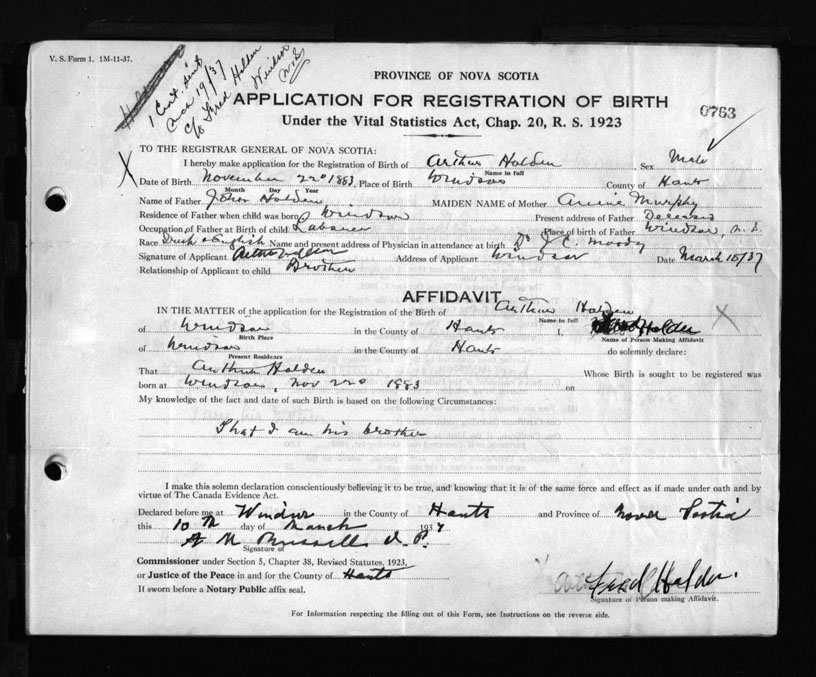 V. S. Form 1. 1M-11-37.
1 Cert. sent
19/37
c/o Fred Holden
Windsor
N.S.
PROVINCE OF NOVA SCOTIA
APPLICATION FOR REGISTRATION OF BIRTH
0763
Under the Vital Statistics Act, Chap. 20, R. S. 1923
TO THE REGISTRAR GENERAL OF NOVA SCOTIA:
I hereby make application for the Registration of Birth of Arthur Holden Sex Male
Name in full
Date of Birth November 22nd 1883, Place of Birth Windsor County of Hants
Month Day Year
Name of Father John Holden MAIDEN NAME of Mother Annie Murphy
Residence of Father when child was born Windsor Present address of Father Deceased
Occupation of Father at Birth of Child Labourer Place of birth of Father Windsor, N. S.
Race & English Name and present address of Physician in attendance at birth Dr J C. Moody
Signature of Applicant Address of Applicant Windsor Date March 10/37
Relationship of Applicant to child Brother
AFFIDAVIT
IN THE MATTER of the application for the Registration of the Birth of Arthur Holden
Name in full
of Windsor in the County of Hants I, Holden
Birth Place Name of Person Making Affidavit
of Windsor in the County of Hants do solemnly declare:
Present Residence
That Arthur Holden Whose Birth is sought to be registered was
born at Windsor, Nov 22nd 1883 on
My knowledge of the fact and date of such Birth is based on the following Circumstances:
That I am his brother
I make this solemn declaration conscientiously believing it to be true, and knowing that it is of the same force and effect as if made under oath and by
virtue of The Canada Evidence Act.
Declared before me at Windsor in the County of Hants and Province of Nova Scotia
this 10th day of March 1937
A M Russell J. P.
Signature of
Commissioner under Section 5, Chapter 38, Revised Statutes, 1923,
or Justice of the Peace in and for the County of Hants
Fred Holden.
If sworn before a Notary Public affix seal.
Signature of Person making Affidavit.
For Information respecting the filling out of this Form, see Instructions on the reverse side.